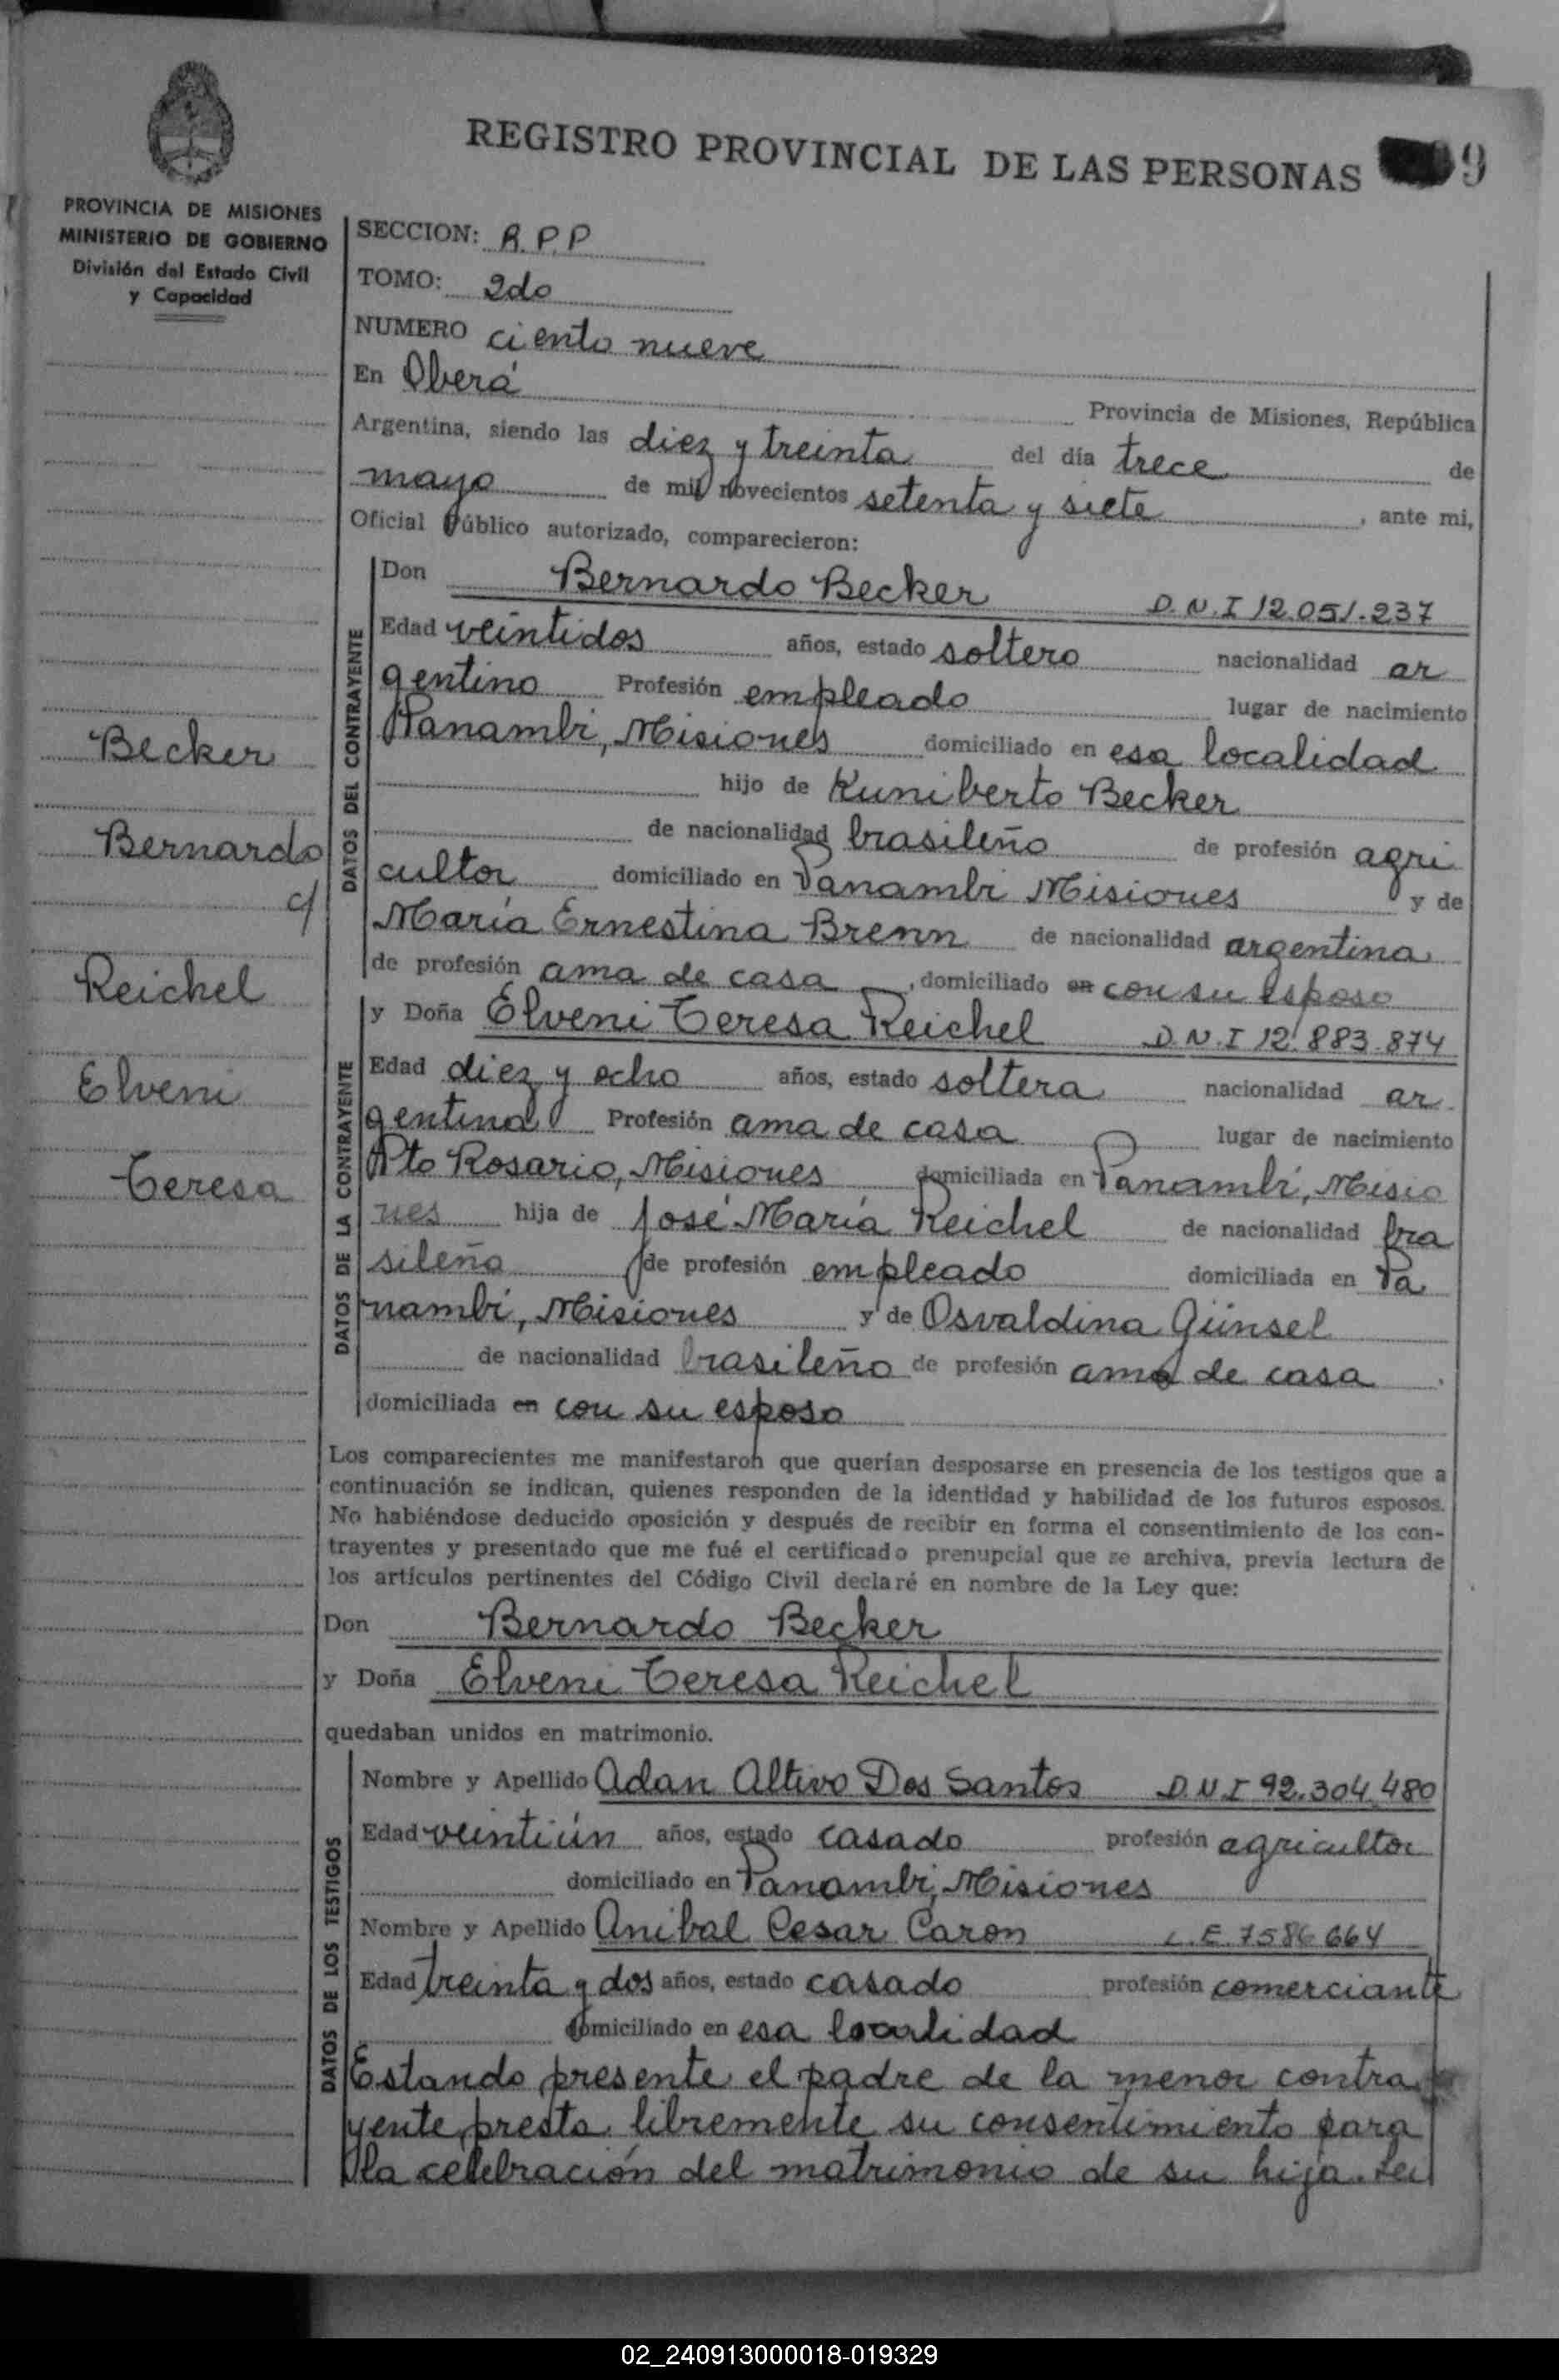 REGISTRO PROVINCIAL DE LAS PERSONAS 9
PROVINCIA DE MISIONES
MINISTERIO DE GOBIERNO
División del Estado Civil
y Capacidad
Becker
Bernardo
c/
Reichel
Elveni
Teresa
SECCION: R.P.P
TOMO: 2do
NUMERO ciento nueve
En Oberá Provincia de Misiones, República
Argentina, siendo las diez y treinta del día trece de
mayo de mil novecientos setenta y siete, ante mi,
Oficial Público autorizado, comparecieron:
DATOS DEL CONTRAYENTE
Don Bernardo Becker D.N.I 12.051.237
Edad veintidos años, estado soltero nacionalidad ar
gentino Profesión empleado lugar de nacimiento
Panambi, Misiones domiciliado en esa localidad
hijo de Kuniberto Becker
de nacionalidad brasileño de profesión agri
cultor domiciliado en Panambi Misiones y de
María Ernestina Brenn de nacionalidad argentina
de profesión ama de casa, domiciliado en con su esposo
DATOS DE LA CONTRAYENTE
y Doña Elveni Teresa Reichel D.N.I 12.883.874
Edad diez y ocho años, estado soltera nacionalidad ar
gentina Profesión ama de casa lugar de nacimiento
Pto Rosario, Misiones domiciliada en Panambí, Misio
nes hija de José María Reichel de nacionalidad bra
sileña de profesión empleado domiciliada en Pa
nambí, Misiones y de Osvaldina Günsel
de nacionalidad brasileño de profesión ama de casa
domiciliada en con su esposo
Los comparecientes me manifestaron que querían desposarse en presencia de los testigos que a
continuación se indican, quienes responden de la identidad y habilidad de los futuros esposos.
No habiéndose deducido oposición y después de recibir en forma el consentimiento de los con-
trayentes y presentado que me fué el certificado prenupcial que se archiva, previa lectura de
los artículos pertinentes del Código Civil declaré en nombre de la Ley que:
Don Bernardo Becker
y Doña Elveni Teresa Reichel
quedaban unidos en matrimonio.
DATOS DE LOS TESTIGOS
Nombre y Apellido Adan Altivo Dos Santos D.N.I 92.304.480
Edad veintiún años, estado casado profesión agricultor
domiciliado en Panambi, Misiones
Nombre y Apellido Anibal Cesar Caron L.E. 7586664
Edad treinta y dos años, estado casado profesión comerciante
domiciliado en esa localidad
Estando presente el padre de la menor contra
yente, presta libremente su consentimiento para
la celebración del matrimonio de su hija.
02_240913000018-019329